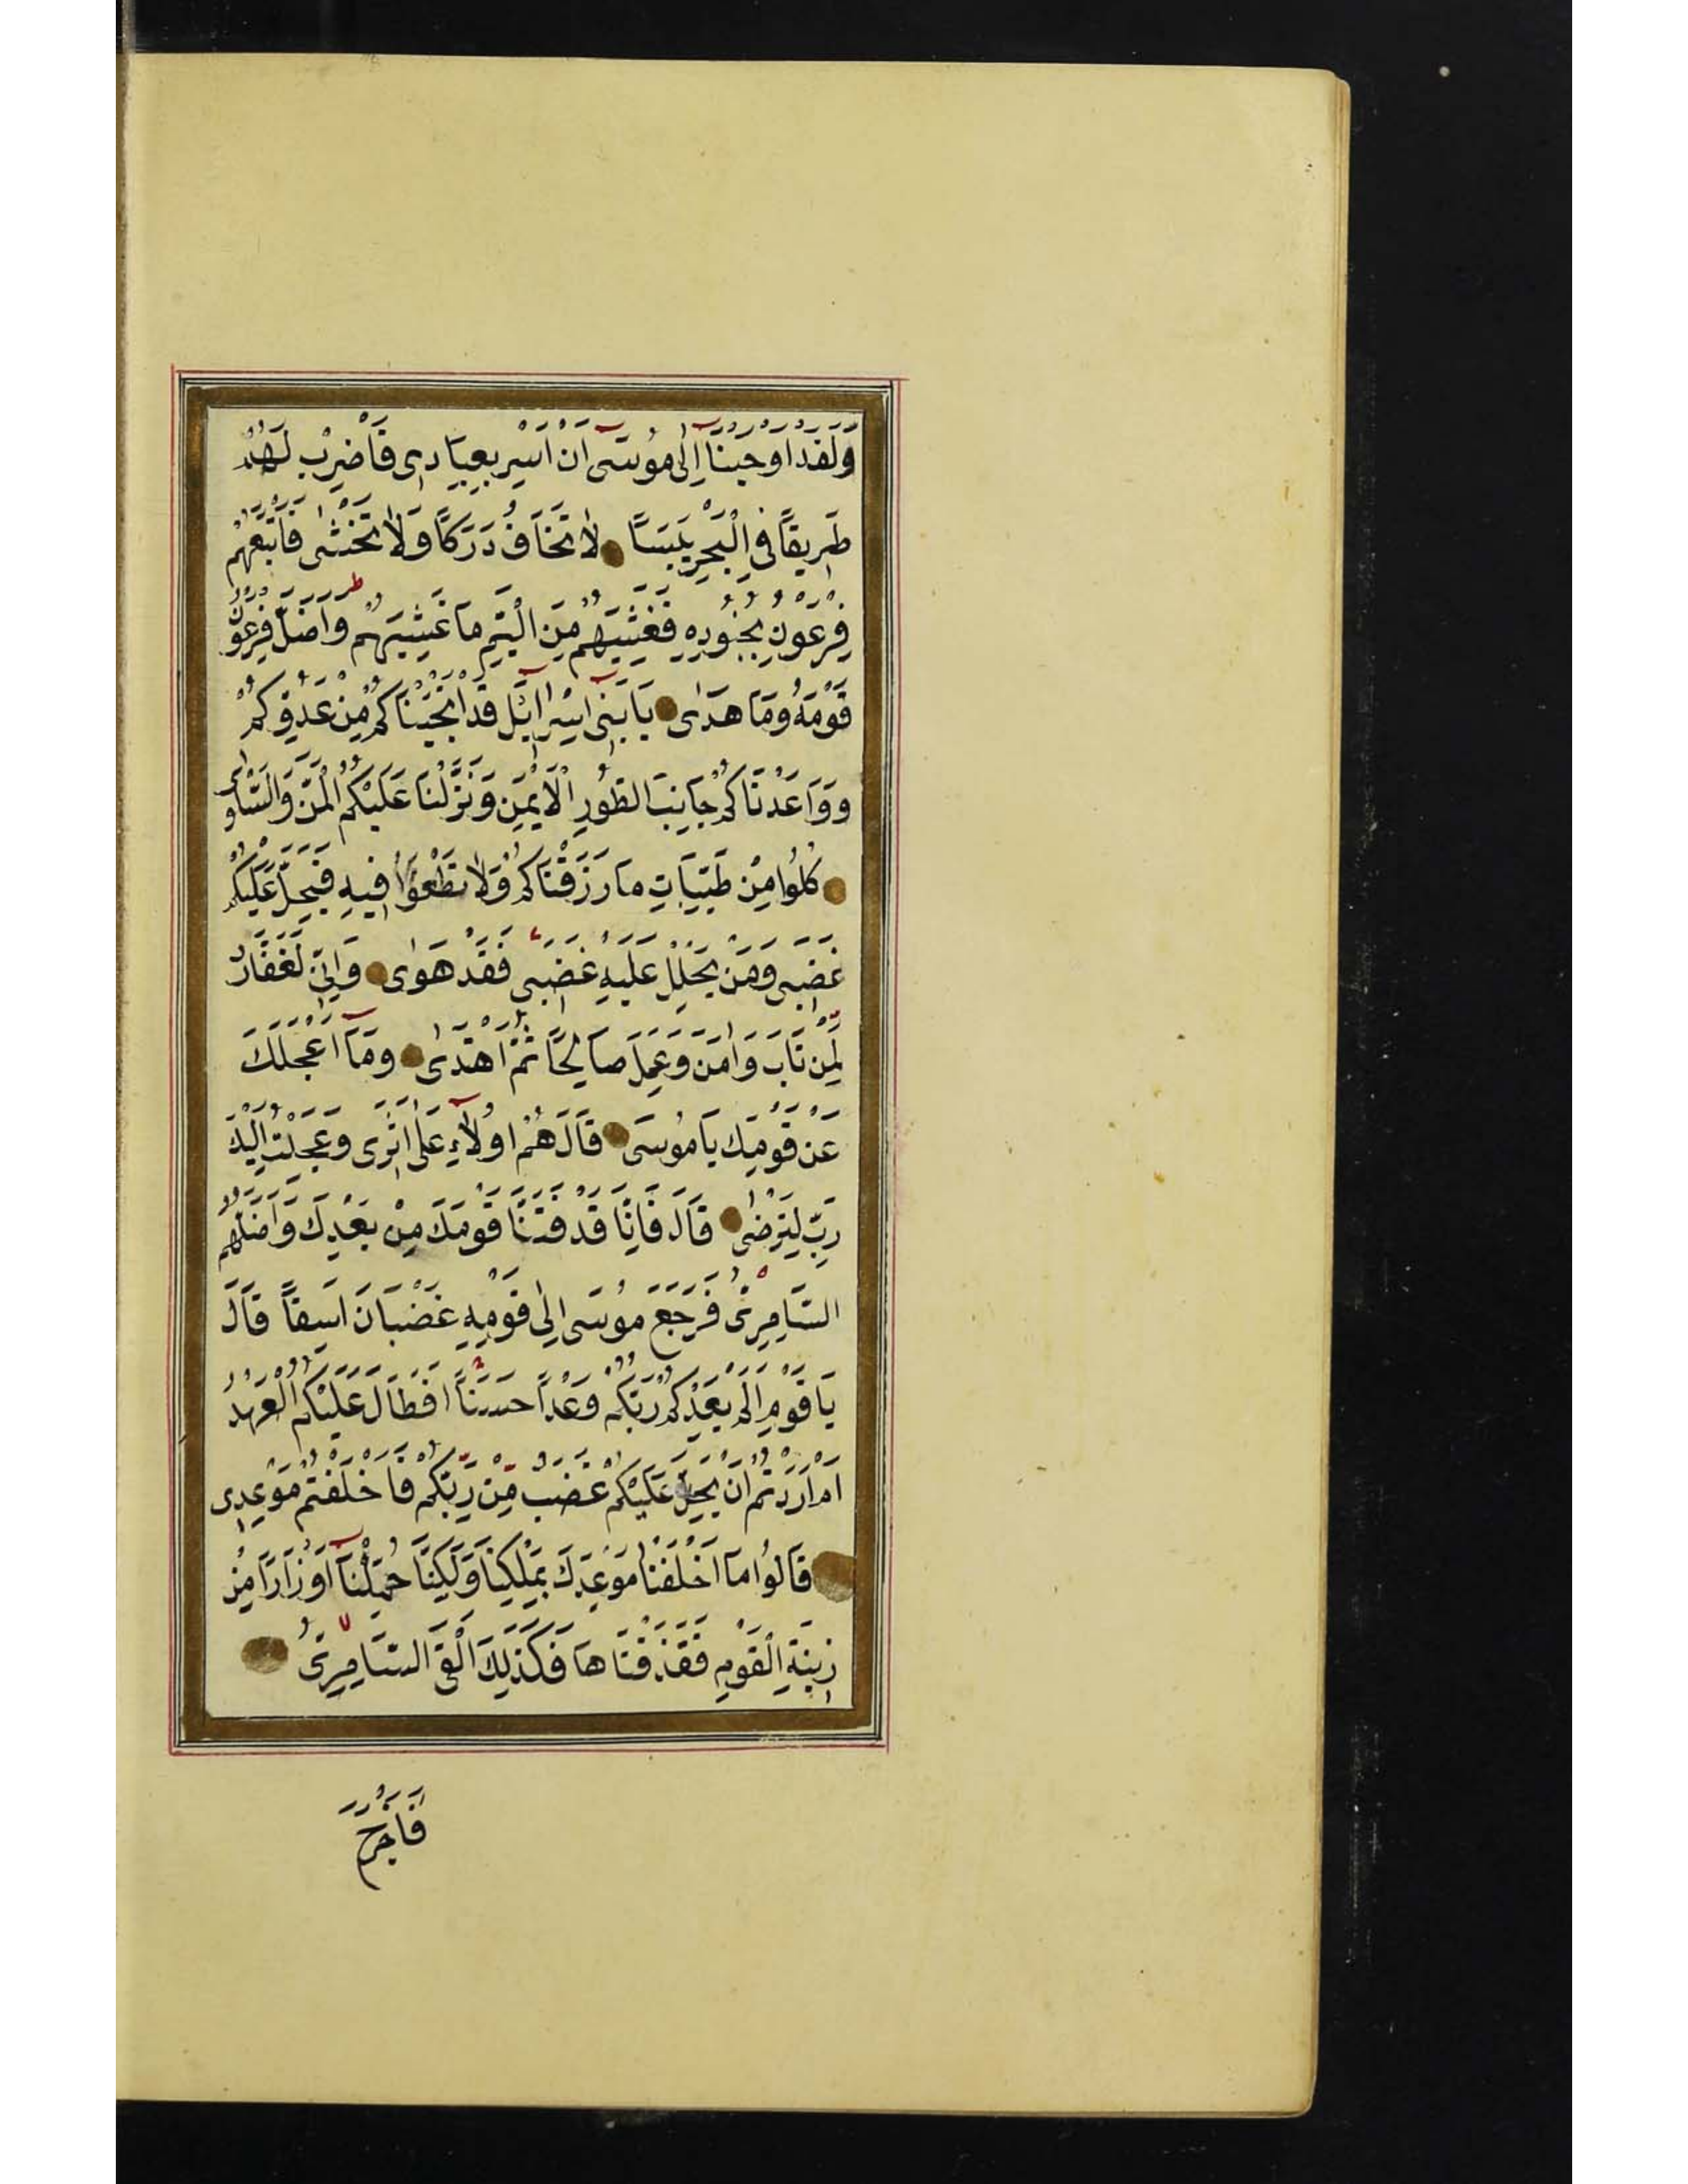 وَلَقَدْ اَوْحَيْنَآ اِلٰى مُوسٰٓى اَنْ اَسْرِ بِعِبَادِى فَاضْرِبْ لَهُمْ
طَرِيقًا فِى الْبَحْرِ يَبَسًا لَا تَخَافُ دَرَكًا وَلَا تَخْشٰى فَاَتْبَعَهُمْ
فِرْعَوْنُ بِجُنُودِهِ فَغَشِيَهُمْ مِنَ الْيَمِّ مَا غَشِيَهُمْ ط وَاَضَلَّ فِرْعَوْنُ
قَوْمَهُ وَمَا هَدٰى يَا بَنِىٓ اِسْرَآئِلَ قَدْ اَنْجَيْنَاكُمْ مِنْ عَدُوِّكُمْ
وَوَاعَدْنَاكُمْ جَانِبَ الطُّورِ الْاَيْمَنَ وَنَزَّلْنَا عَلَيْكُمُ الْمَنَّ وَالسَّلْوٰى
كُلُوا مِنْ طَيِّبَاتِ مَا رَزَقْنَاكُمْ وَلَا تَطْغَوْا فِيهِ فَيَحِلَّ عَلَيْكُمْ
غَضَبِى وَمَنْ يَحْلِلْ عَلَيْهِ غَضَبِى فَقَدْ هَوٰى وَاِنِّى لَغَفَّارٌ
لِمَنْ تَابَ وَاٰمَنَ وَعَمِلَ صَالِحًا ثُمَّ اهْتَدٰى وَمَآ اَعْجَلَكَ
عَنْ قَوْمِكَ يَا مُوسَى قَالَ هُمْ اُولَآءِ عَلٰى اَثَرِى وَعَجِلْتُ اِلَيْكَ
رَبِّ لِتَرْضٰى قَالَ فَاِنَّا قَدْ فَتَنَّا قَوْمَكَ مِنْ بَعْدِكَ وَاَضَلَّهُمُ
السَّامِرِىُّ فَرَجَعَ مُوسَى اِلٰى قَوْمِهِ غَضْبَانَ اَسِفًا قَالَ
يَا قَوْمِ اَلَمْ يَعِدْكُمْ رَبُّكُمْ وَعْدًا حَسَنًا اَفَطَالَ عَلَيْكُمُ الْعَهْدُ
اَمْ اَرَدْتُمْ اَنْ يَحِلَّ عَلَيْكُمْ غَضَبٌ مِنْ رَبِّكُمْ فَاَخْلَفْتُمْ مَوْعِدِى
قَالُوا مَا اَخْلَفْنَا مَوْعِدَكَ بِمَلْكِنَا وَلَكِنَّا حُمِّلْنَآ اَوْزَارًا مِنْ
زِينَةِ الْقَوْمِ فَقَذَفْنَاهَا فَكَذَلِكَ اَلْقَى السَّامِرِىُّ
فَاَخْرَجَ